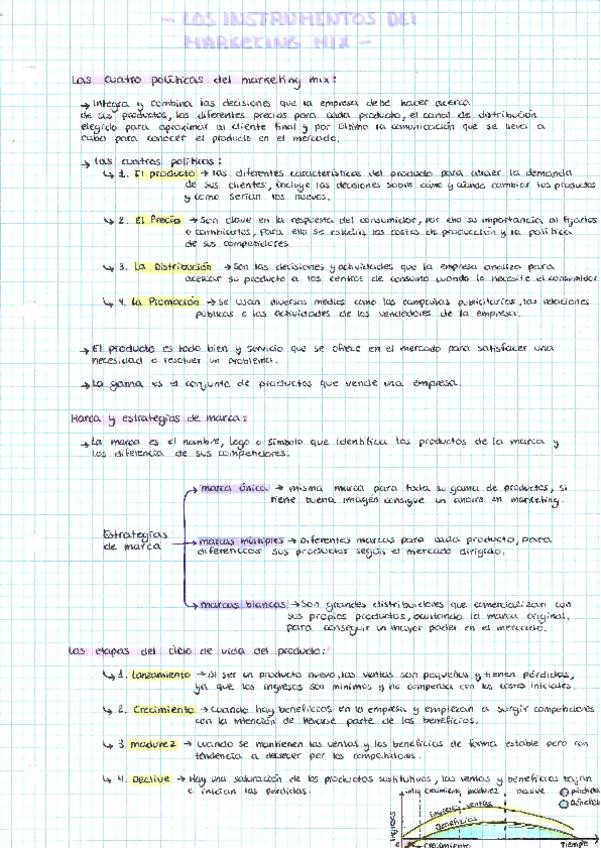 - LOS INSTRUMENTOS DEL
MARKETING MIX -
Las cuatro políticas del marketing mix:
→ Integra y combina las decisiones que la empresa debe hacer acerca
de sus productos, los diferentes precios para cada producto, el canal de distribución
elegido para aproximar al cliente final y por último la comunicación que se lleva a
cabo para conocer el producto en el mercado.
→ Las cuatros políticas:
↳ 1. El producto → las diferentes características del producto para atraer la demanda
de sus clientes, incluye las decisiones sobre cómo y cuándo cambiar los productos
y como serían los nuevos.
↳ 2. El Precio → Son clave en la respuesta del consumidor, por ello su importancia al fijarlos
o cambiarlos, para ello se estudia los costes de producción y la política
de sus competidores.
↳ 3. La Distribución → Son las decisiones y actividades que la empresa analiza para
acercar su producto a los centros de consumo cuando lo necesite el consumidor
↳ 4. La Promoción → Se usan diversos medios como las campañas publicitarias, las relaciones
públicas o las actividades de los vendedores de la empresa.
→ El producto es todo bien y servicio que se ofrece en el mercado para satisfacer una
necesidad o resolver un problema.
→ La gama es el conjunto de productos que vende una empresa.
Marca y estrategias de marca:
→ La marca es el nombre, logo o símbolo que identifica los productos de la marca y
los diferencia de sus competidores.
→ marca única → misma marca para toda su gama de productos, si
tiene buena imagen consigue un ahorro en marketing.
Estrategias
de marca
→ marcas múltiples → Diferentes marcas para cada producto, para
diferenciar sus productos según el mercado dirigido.
→ marcas blancas → Son grandes distribuidores que comercializan con
sus propios productos, ocultando la marca original,
para conseguir un mayor poder en el mercado.
Las etapas del ciclo de vida del producto:
↳ 1. Lanzamiento → Al ser un producto nuevo, las ventas son pequeñas y tienen pérdidas,
ya que los ingresos son mínimos y no compensa con los costes iniciales.
↳ 2. Crecimiento → cuando hay beneficios en la empresa y empiezan a surgir competidores
con la intención de llevarse parte de los beneficios.
↳ 3 madurez → cuando se mantienen las ventas y los beneficios de forma estable pero con
tendencia a decrecer por los competidores.
↳ 4. Declive → Hay una saturación de los productos sustitutivos, las ventas y beneficios bajan
e inician las pérdidas.
crecimiento madurez Declive
ventas
Beneficios
Ingresos
crecimiento
Tiempo